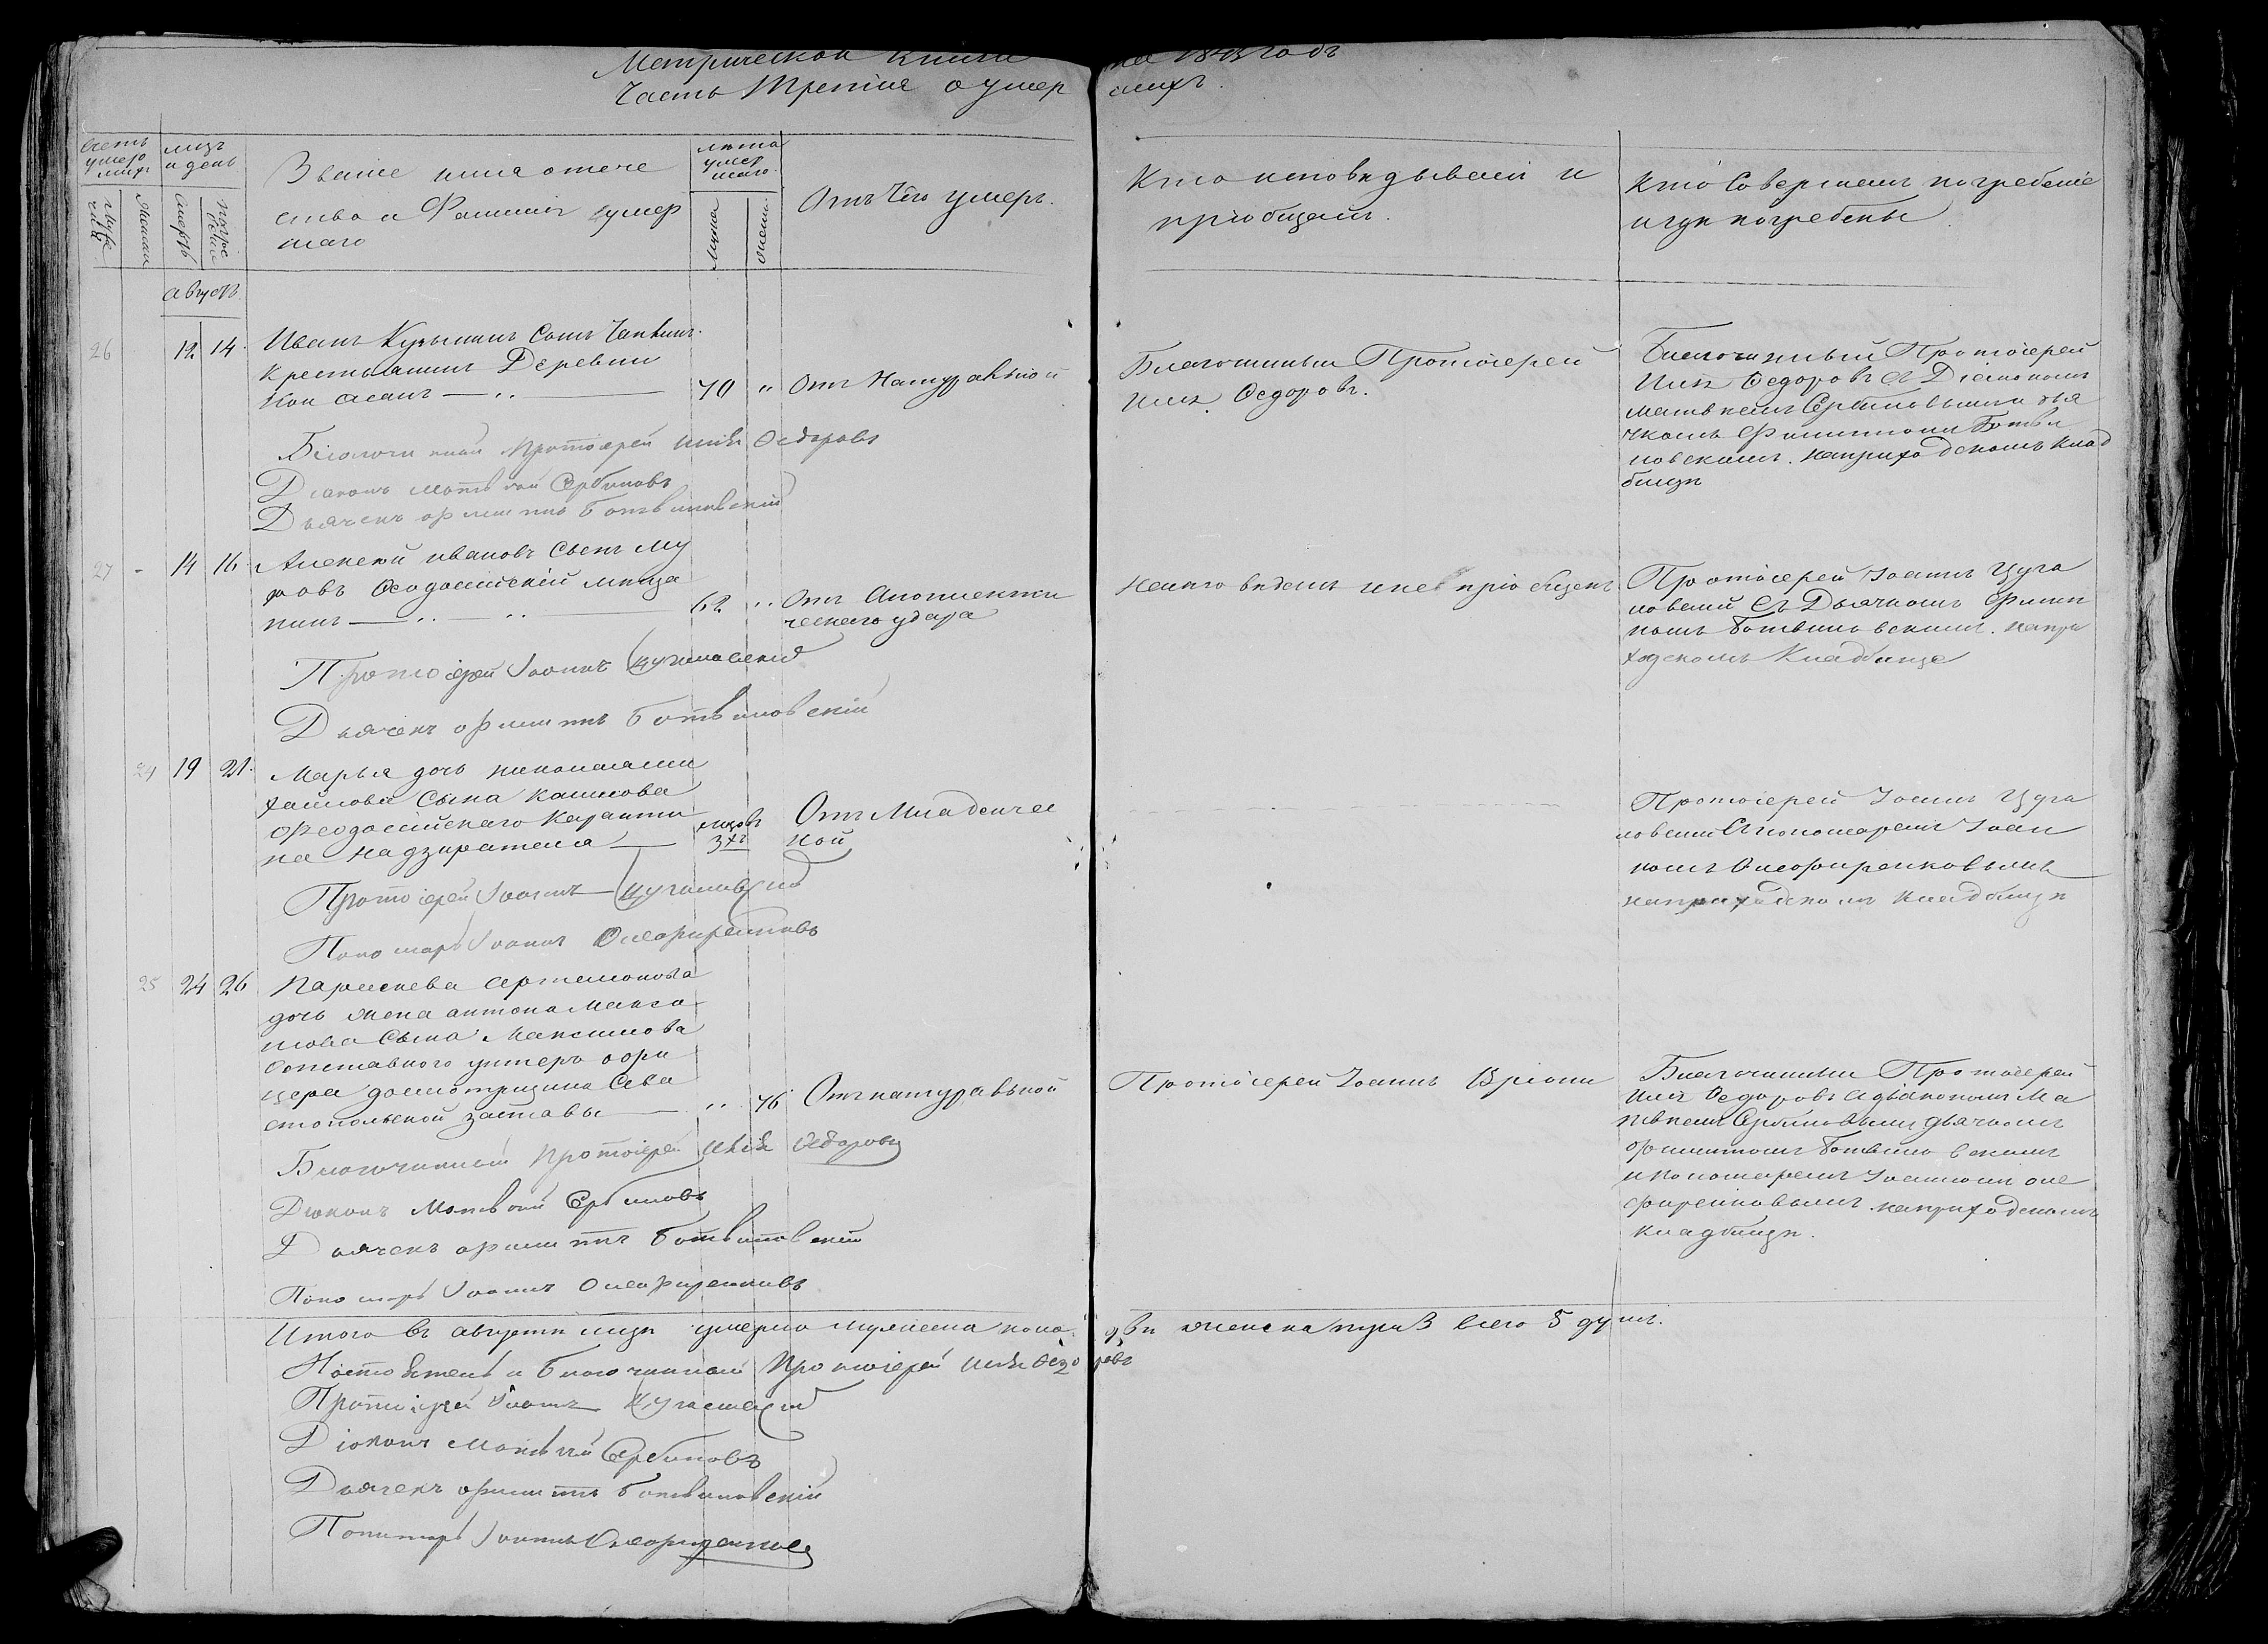 Метрической книги на 1843 годъ
Часть Третія о умершихъ.
Счетъ умершихъ
Мужеска
Женска
мцъ и день
Смерть
Погребеніе
Званіе имя отечество и Фамилія умершаго
лѣта умершаго.
Мужа
Женс.
Отъ Чего умеръ.
Кто исповѣдывалъ и
пріобщалъ.
Кто Совершалъ погребеніе
и гдѣ погребены
Августъ.
26
12
14
Иванъ Кузьминъ Сынъ
Крестьянинъ Деревни
70
"
Отъ Натуральной
Благочинный Протоіерей
Ѳедоровъ.
Благочинный Протоіерей
Ѳедоровъ съ Діакономъ
Матвѣемъ Сербиновымъ и дья
чкомъ Филиппомъ Ботви
новскимъ. на приходскомъ клад
бищѣ
Благочинный Протоіерей Ѳедоровъ
Діаконъ Матвѣй Сербиновъ
Дьячекъ Филиппъ Ботвиновскій
27
-
14
16
Алексѣй Ивановъ Сынъ Му
ровъ Ѳеодосійскій мѣща
нинъ
62
"
Отъ Апоплекти
ческаго удара
Неисповѣданъ и не пріобщенъ
Протоіерей Іоаннъ Цуга
новскій съ Дьячкомъ Филип
помъ Ботвиновскимъ. на при
ходскомъ Кладбище
Протоіерей Іоаннъ Цугановскій
Дьячекъ Филиппъ Ботвиновскій
24
19
21.
Марья дочь Николая Ми
хайлова Сына Калинова
Ѳеодосійскаго Каранти
на надзирателя
мцовъ
3хъ
Отъ Младенчес
кой
Протоіерей Іоаннъ Цуга
новскій съ пономаремъ Іоан
номъ Олефиренковымъ
на приходскомъ кладбищѣ
Протоіерей Іоаннъ Цугановскій
Пономарь Іоаннъ Олефиренковъ
25
24
26
Параскева Артемонова
дочь жена Антона Макси
мова Сына Максимова
отставного унтеръ офи
цера досмотрщика Сева
стопольской заставы
"
76
Отъ натуральной
Протоіерей Іоаннъ Вріони
Благочинный Протоіерей
Ѳедоровъ съ діакономъ Ма
твѣемъ Сербиновымъ дьячкомъ
Филиппомъ Ботвиновскимъ
и пономаремъ Іоанномъ Оле
фиренковымъ на приходскомъ
кладбищѣ.
Благочинный Протоіерей Ѳедоровъ
Діаконъ Матвѣй Сербиновъ
Дьячекъ Филиппъ Ботвиновскій
Пономарь Іоаннъ Олефиренковъ
Итого въ августѣ мцѣ умерло мужеска пола двѣ женска три 3 всего 5 душъ.
Настоятель и Благочинный Протоіерей Ѳедоровъ
Протоіерей Іоаннъ Цугановскій
Діаконъ Матвѣй Сербиновъ
Дьячекъ Филиппъ Ботвиновскій
Пономарь Іоаннъ Олефиренковъ